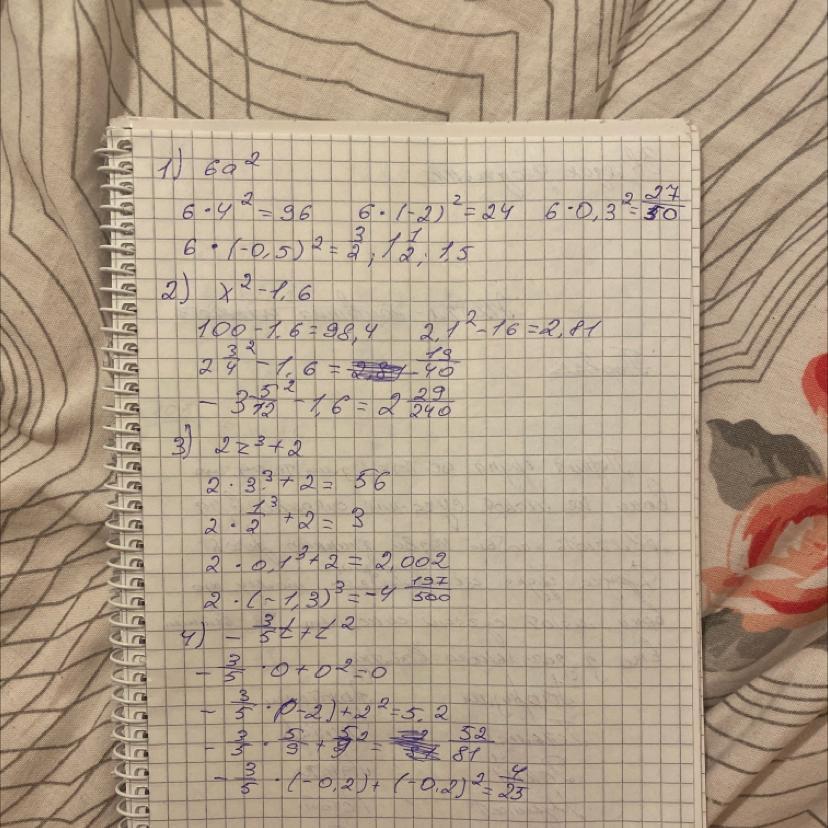 1) 6a²
6·4² = 96 6·(-2)² = 24 6·0,3² = 27/50
6·(-0,5)² = 3/2; 1 1/2; 1.5
2) x² - 1,6
100 - 1,6 = 98,4 2,1² - 16 = 2,81
2 3/4² - 1,6 = 19/40
- 3 5/12² - 1,6 = 2 29/240
3) 2z³ + 2
2·3³ + 2 = 56
2·1/2³ + 2 = 3
2·0,1³ + 2 = 2,002
2·(-1,3)³ = -4 197/500
4) - 3/5 t + t²
- 3/5·0 + 0² = 0
- 3/5·(-2) + 2² = 5,2
- 3/5·5/9 + 5/9² = 52/81
- 3/5·(-0,2) + (-0,2)² = 4/25